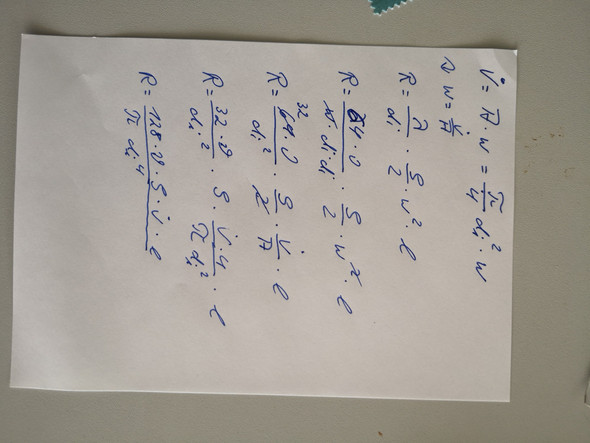 V̇ = A · w = π/4 di² · w
↷ w = V̇/A
R = λ/di · ρ/2 · w² · l
R = 64 · ν/w · di · di · ρ/2 · w² · l
R = 64 32 · ν/di² · ρ/2 · V̇/A · l
R = 32 · ν/di² · ρ · V̇ · 4/π di² · l
R = 128 · ν · ρ · V̇ · l/π di⁴